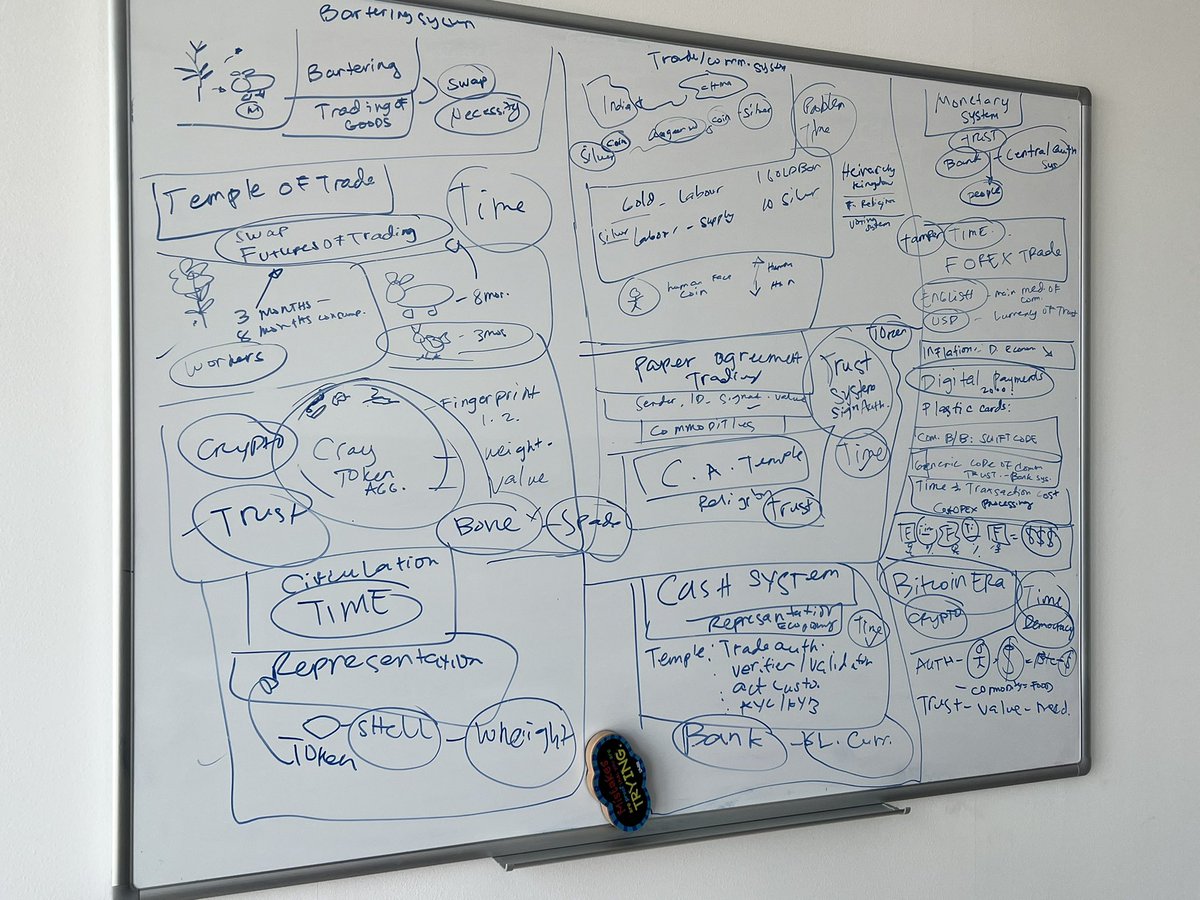 Bartering system
Bartering
Trading of
GOODS
swap
Necessity
M
Temple of Trade
Time
swap
Futures of Trading
3 MONTHS -
8 MONTHS consump.
Workers
- 8 mos.
- 3 mos
Crypto
Trust
Cray
TOKEN
Acc.
- Fingerprint
1. 2.
weight -
value
Bone
Spade
Circulation
TIME
Representation
SHELL
Wheight
Token
Trade/comm. system
China
coin - Silver
Silver coin
Problem
Time
Gold - Labour
1 GOLD Bar
Silver Labor - Supply
10 Silver
Heirarchy
Kingdom
Religion
voting system
human Face
coin
Human
Paper agreement
Trading
Sender. ID - Signat. value
Commodities
Token
Trust
System
Sign Auth.
Time
C. A. Temple
Trust
Cash System
Represantation
Economy
Time
Temple: Trade auth.
: verifier/validator
: act custo.
: KYC/KYB
Bank
Curr.
Monetary
System
TRUST
Bank
Central auth
Sys
people
tamper
TIME.
FOREX TRADE
ENGLISH - main med of
com.
USD - Currency of Trust
Inflation:
Digital payments
2000
Plastic cards:
Com. B/B: SWIFT CODE
Generic code of comm
TRUST - Bank sys.
Time & Transaction cost
Processing
= $$$
Bitcoin Era
Crypto
Time
Democracy
AUTH -
- comodity = Food
Trust - value - need.
Mistakes
TRYING.